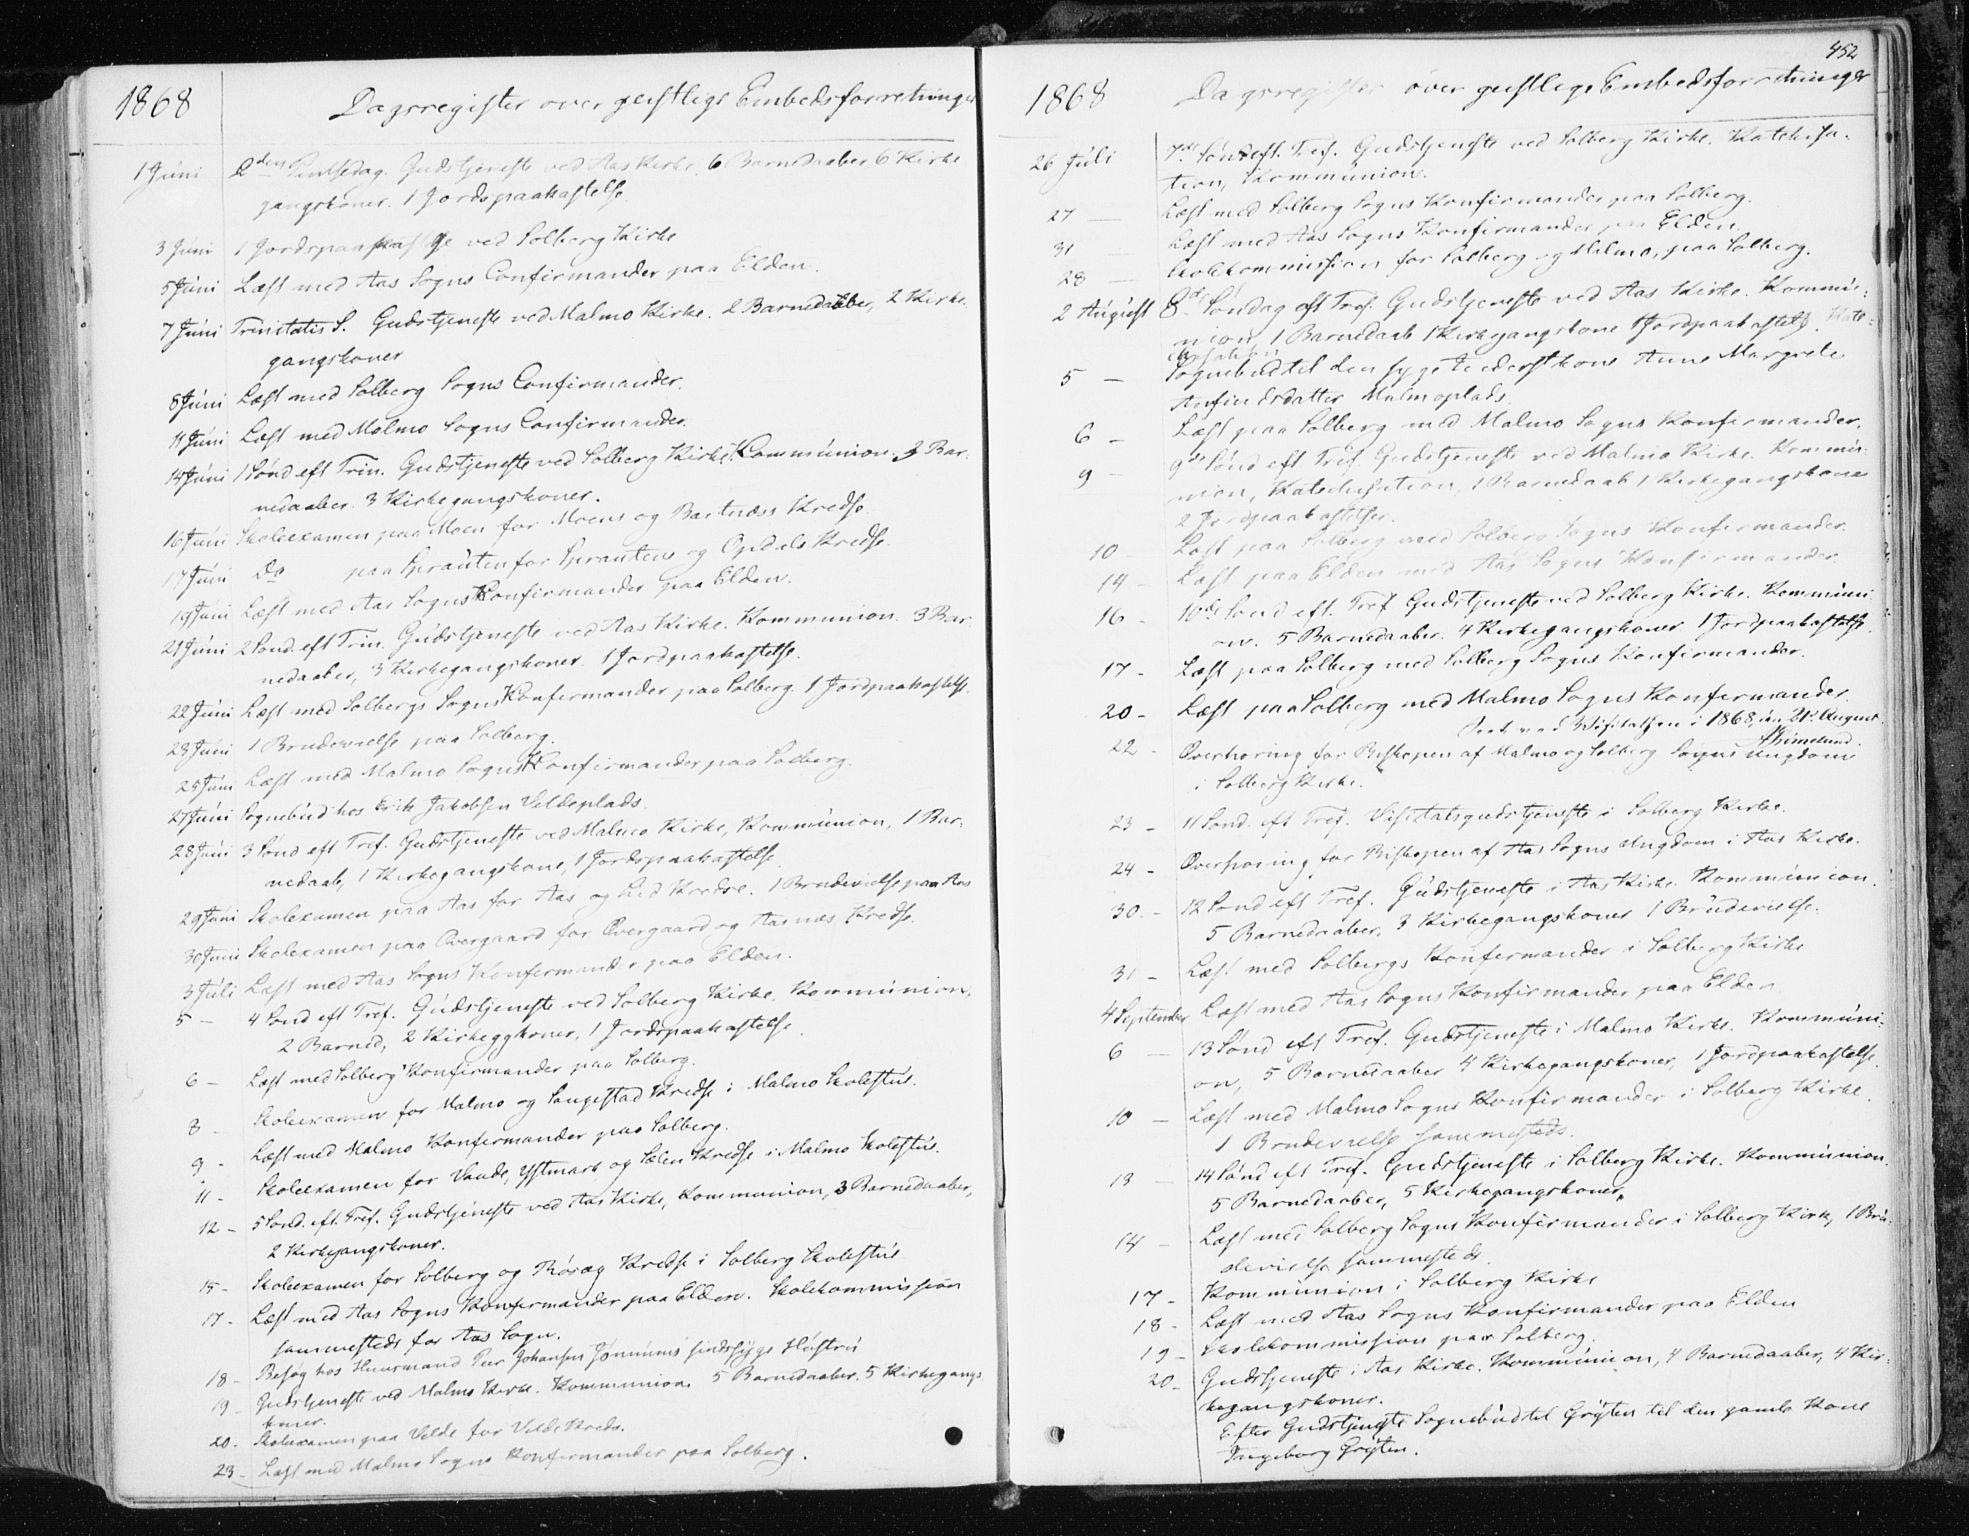 1868 Dagsregister over geistlige Embedsforretninger
1 Juni 2den Pintsedag. Gudstjeneste ved Aas Kirke. 6 Barnedaaber 6 Kirke
gangskoner. 1 Jordspaakastelse.
3 Juni 1 Jordspaakastelse ved Solberg Kirke
5 Juni Læst med Aas Sogns Confirmander paa Elden.
7 Juni Trinitatis S. Gudstjeneste ved Malmo Kirke. 2 Barnedaaber, 2 Kirke
gangskoner
8 Juni Læst med Solberg Sogns Confirmander.
11 Juni Læst med Malmo Sogns Confirmander.
14 Juni 1 Sønd eft Trin. Gudstjeneste ved Solberg Kirke. Communion. 3 Bar-
nedaaber. 3 Kirkegangskoner.
16 Juni Skoleexamen paa Moen for Moens og Bartnæss Kredse.
17 Juni Do paa Sprauten for Sprautens og Opdals Kredse.
19 Juni Læst med Aas Sogns Konfirmander paa Elden.
21 Juni 2 Sønd. eft Trin. Gudstjeneste ved Aas Kirke. Kommunion. 3 Bar
nedaaber, 3 Kirkegangskoner. 1 Jordpaakastelse.
22 Juni Læst med Solbergs Sogns Konfirmander paa Solberg. 1 Jordpaakastelse.
23 Juni 1 Brudevielse paa Solberg.
25 Juni Læst med Malmo Sogns Konfirmander paa Solberg.
27 Juni Sognebud hos Erik Jakobsen Veldeplads.
28 Juni 3 Sønd eft Tref. Gudstjeneste ved Malmo Kirke, Kommunion, 1 Bar-
nedaab, 1 Kirkegangskone, 1 Jordspaakastelse.
29 Juni Skolexamen paa Aas for Aas og Lid Kredse. 1 Brudevielse paa Aas
30 Juni Skolexamen paa Overgaard for Overgaard og Aasnæs Kredse.
3 Juli Læst med Aas Sogns Konfirmander paa Elden.
5 – 4 Sønd eft Tref. Gudstjeneste ved Solberg Kirke. Kommunion,
2 Barned, 2 Kirkeggkoner, 1 Jordspaakastelse.
6 – Læst med Solberg Konfirmander paa Solberg.
8 – Skoleexamen for Malmo og Sangestad Kredse i Malmo Skolestue.
9 – Læst med Malmo Konfirmander paa Solberg.
11 – Skoleexamen for Vaade, Ystmark og Sælen Kredse i Malmo Skolestue.
12 – 5 Sønd. eft. Tref. Gudstjeneste ved Aas Kirke, Kommunion, 3 Barnedaaber,
2 Kirkegangskoner.
15 – Skoleexamen for Solberg og Røsæg Kredse i Solberg Skolestue
17 – Læst med Aas Sogns Konfirmander paa Elden. Skolekommission
sammesteds for Aas Sogn.
18 – Besøg hos Huusmand Peer Johansen sindssyge Hustru
19 – Gudstjeneste ved Malmo Kirke. Kommunion. 5 Barnedaaber. 5 Kirkegangs
koner.
20 – Skolexamen paa Velde for Velde Kreds.
23 – Læst med Malmo Sogns Konfirmander paa Solberg.
452
1868 Dagsregister over geistlige Embedsforretninger
26 Juli 7de Sønd eft. Tref. Gudstjeneste ved Solberg Kirke. Katekisa-
tion, Kommunion.
27 – Læst med Solberg Sogns Konfirmander paa Solberg.
31 – Læst med Aas Sogns Konfirmander paa Elden.
28 – Skolekommission for Solberg og Malmo, paa Solberg.
2 August 8de Søndag eft Tref. Gudstjeneste ved Aas Kirke. Kommu-
nion, 1 Barnedaab 1 Kirkegangskone 1 Jordpaakastelse. Kate-
kisation
5 – Sognebud til den syge Anne Margrete
Arfindsdatter Malmoplads.
6 – Læst paa Solberg med Malmo Sogns Konfirmander.
9 – 9de Sønd eft Tref. Gudstjeneste ved Malmo Kirke. Kommu-
nion, Katechisation, 1 Barnedaab 1 Kirkegangskone
2 Jordpaakastelser.
10 – Læst paa Solberg med Solberg Sogns Konfirmander.
14 – Læst paa Elden med Aas Sogns Konfirmander.
16 – 10de Sønd eft. Tref Gudstjeneste ved Solberg Kirke. Kommuni
on. 5 Barnedaaber. 4 Kirkegangskoner 1 Jordpaakastelse.
17 – Læst paa Solberg med Solberg Sogns Konfirmander.
20 – Læst paa Solberg med Malmo Sogns Konfirmander.
Seet ved Visitatsen i 1868, den 21de August.
Grimelund.
22 – Overhøring for Biskopen af Malmo og Solberg Sogns Ungdom
i Solberg Kirke.
23 – 11 Sønd. eft Tref. Visitatsgudstjeneste i Solberg Kirke.
24 – Overhøring for Biskopen af Aas Sogns Ungdom i Aas Kirke.
30 – 12 Sønd eft Tref. Gudstjeneste i Aas Kirke. Kommunion.
5 Barnedaaber, 3 Kirkegangskoner 1 Brudevielse.
31 – Læst med Solbergs Konfirmander i Solberg Kirke
4 September Læst med Aas Sogns Konfirmander paa Elden
6 – 13 Sønd eft Tref. Gudstjeneste i Malmo Kirke. Kommuni-
on, 5 Barnedaaber 4 Kirkegangskoner, 1 Jordpaakastelse.
10 – Læst med Malmo Sogns Konfirmander i Solberg Kirke.
1 Brudevielse sammesteds.
13 – 14 Sønd eft Tref. Gudstjeneste i Solberg Kirke. Kommunion.
5 Barnedaaber, 5 Kirkegangskoner.
14 – Læst med Solberg Sogns Konfirmander i Solberg Kirke, 1 Bru-
devielse sammesteds.
17 – Kommunion i Solberg Kirke
18 – Læst med Aas Sogns Konfirmander paa Elden
19 – Skolekommission paa Solberg.
20 – Gudstjeneste i Aas Kirke. Kommunion, 4 Barnedaaber, 4 Kir-
kegangskoner.
Efter Gudstjeneste Sognebud til Grøtten til den gamle Kone
Ingeborg Grøtten.